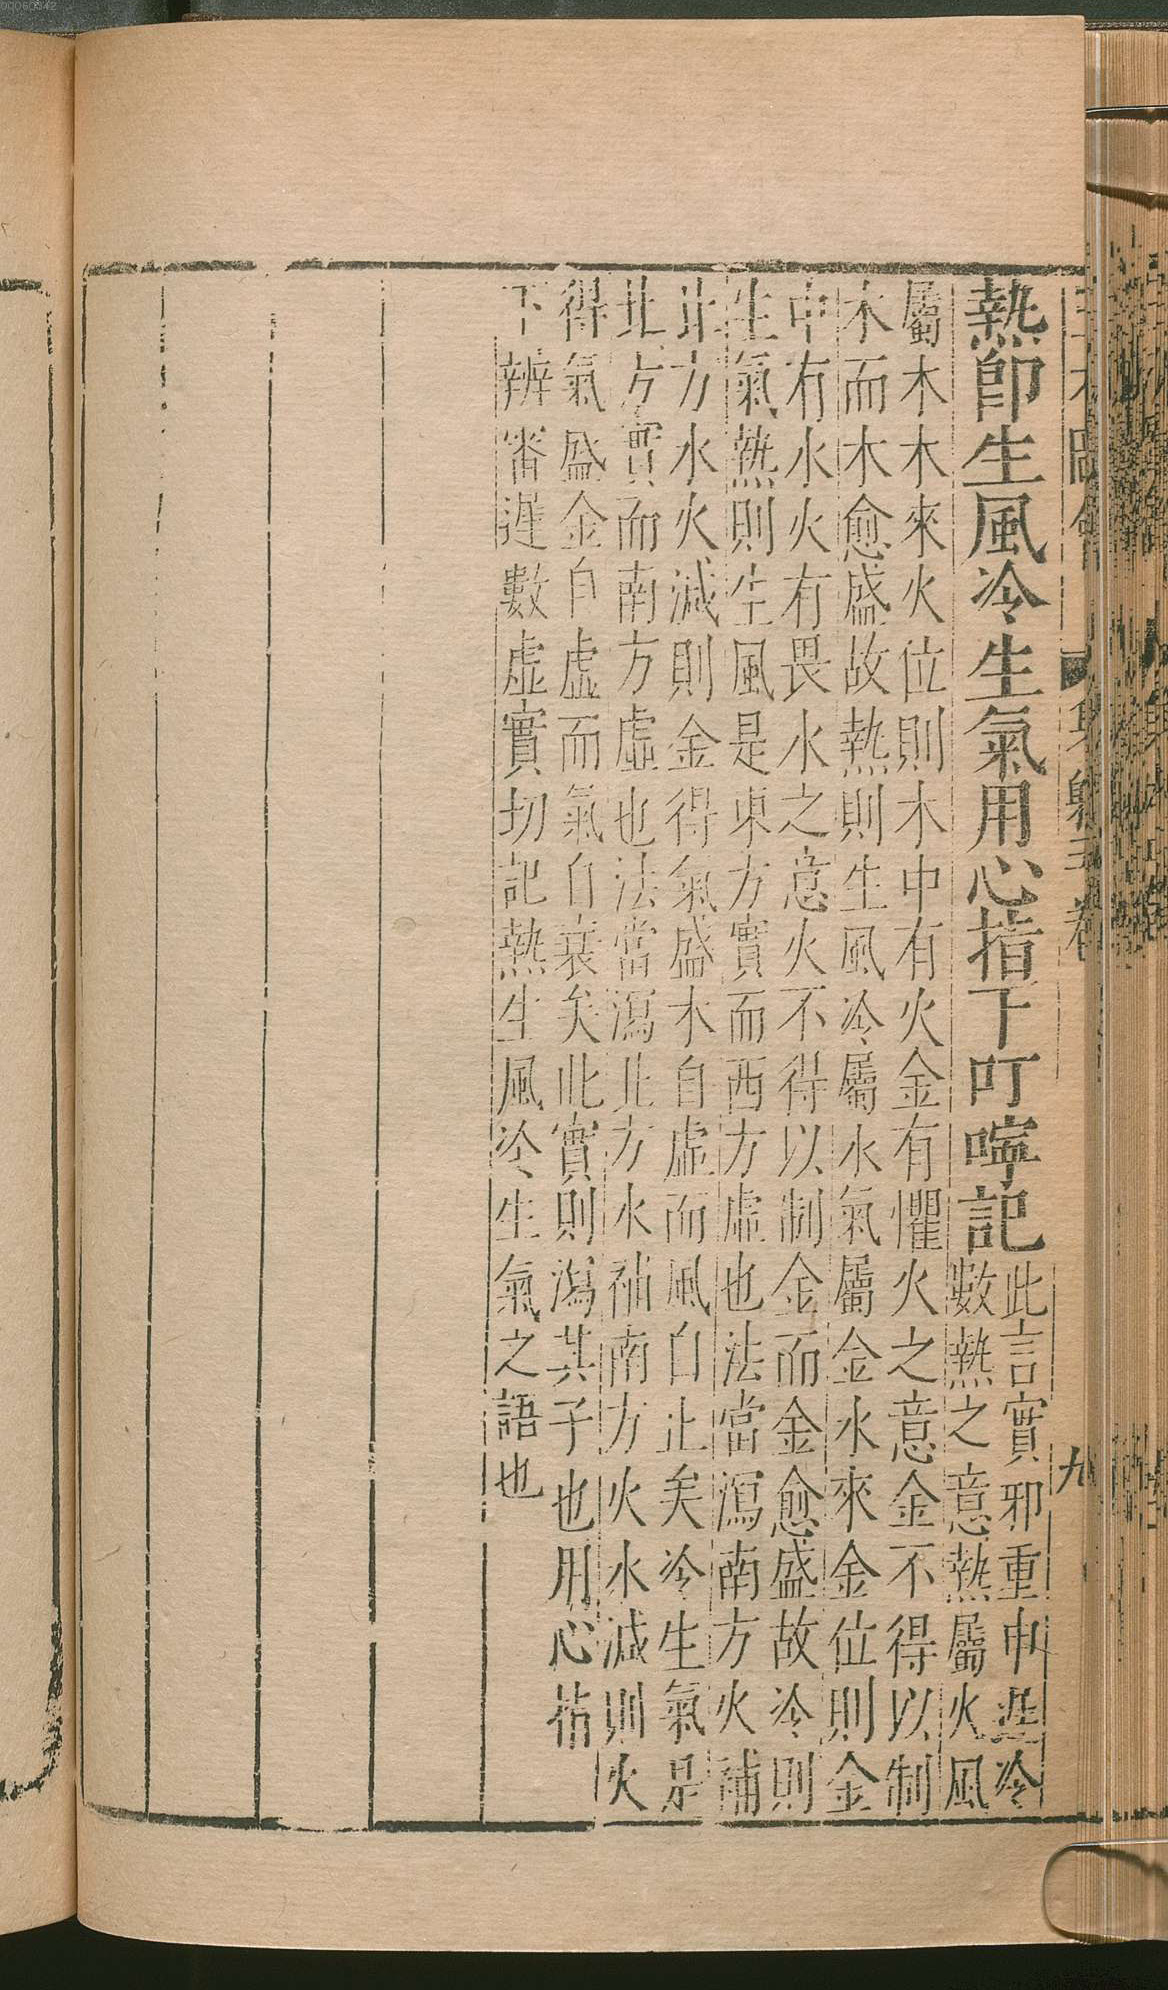 熱即生風冷生氣用心指下叮嚀記
此言實邪重中遲冷
數熱之意熱屬火風
屬木木來火位則木中有火金有懼火之意金不得以制
木而木愈盛故熱則生風冷屬水氣屬金水來金位則金
中有水火有畏水之意火不得以制金而金愈盛故冷則
生氣熱則生風是東方實而西方虛也法當瀉南方火補
北方水火減則金得氣盛木自虛而風自止矣冷生氣是
北方實而南方虛也法當瀉北方水補南方火水減則火
得氣盛金自虛而氣自衰矣此實則瀉其子也用心指
下辨審遲數虛實切記熱生風冷生氣之語也
九
00060042